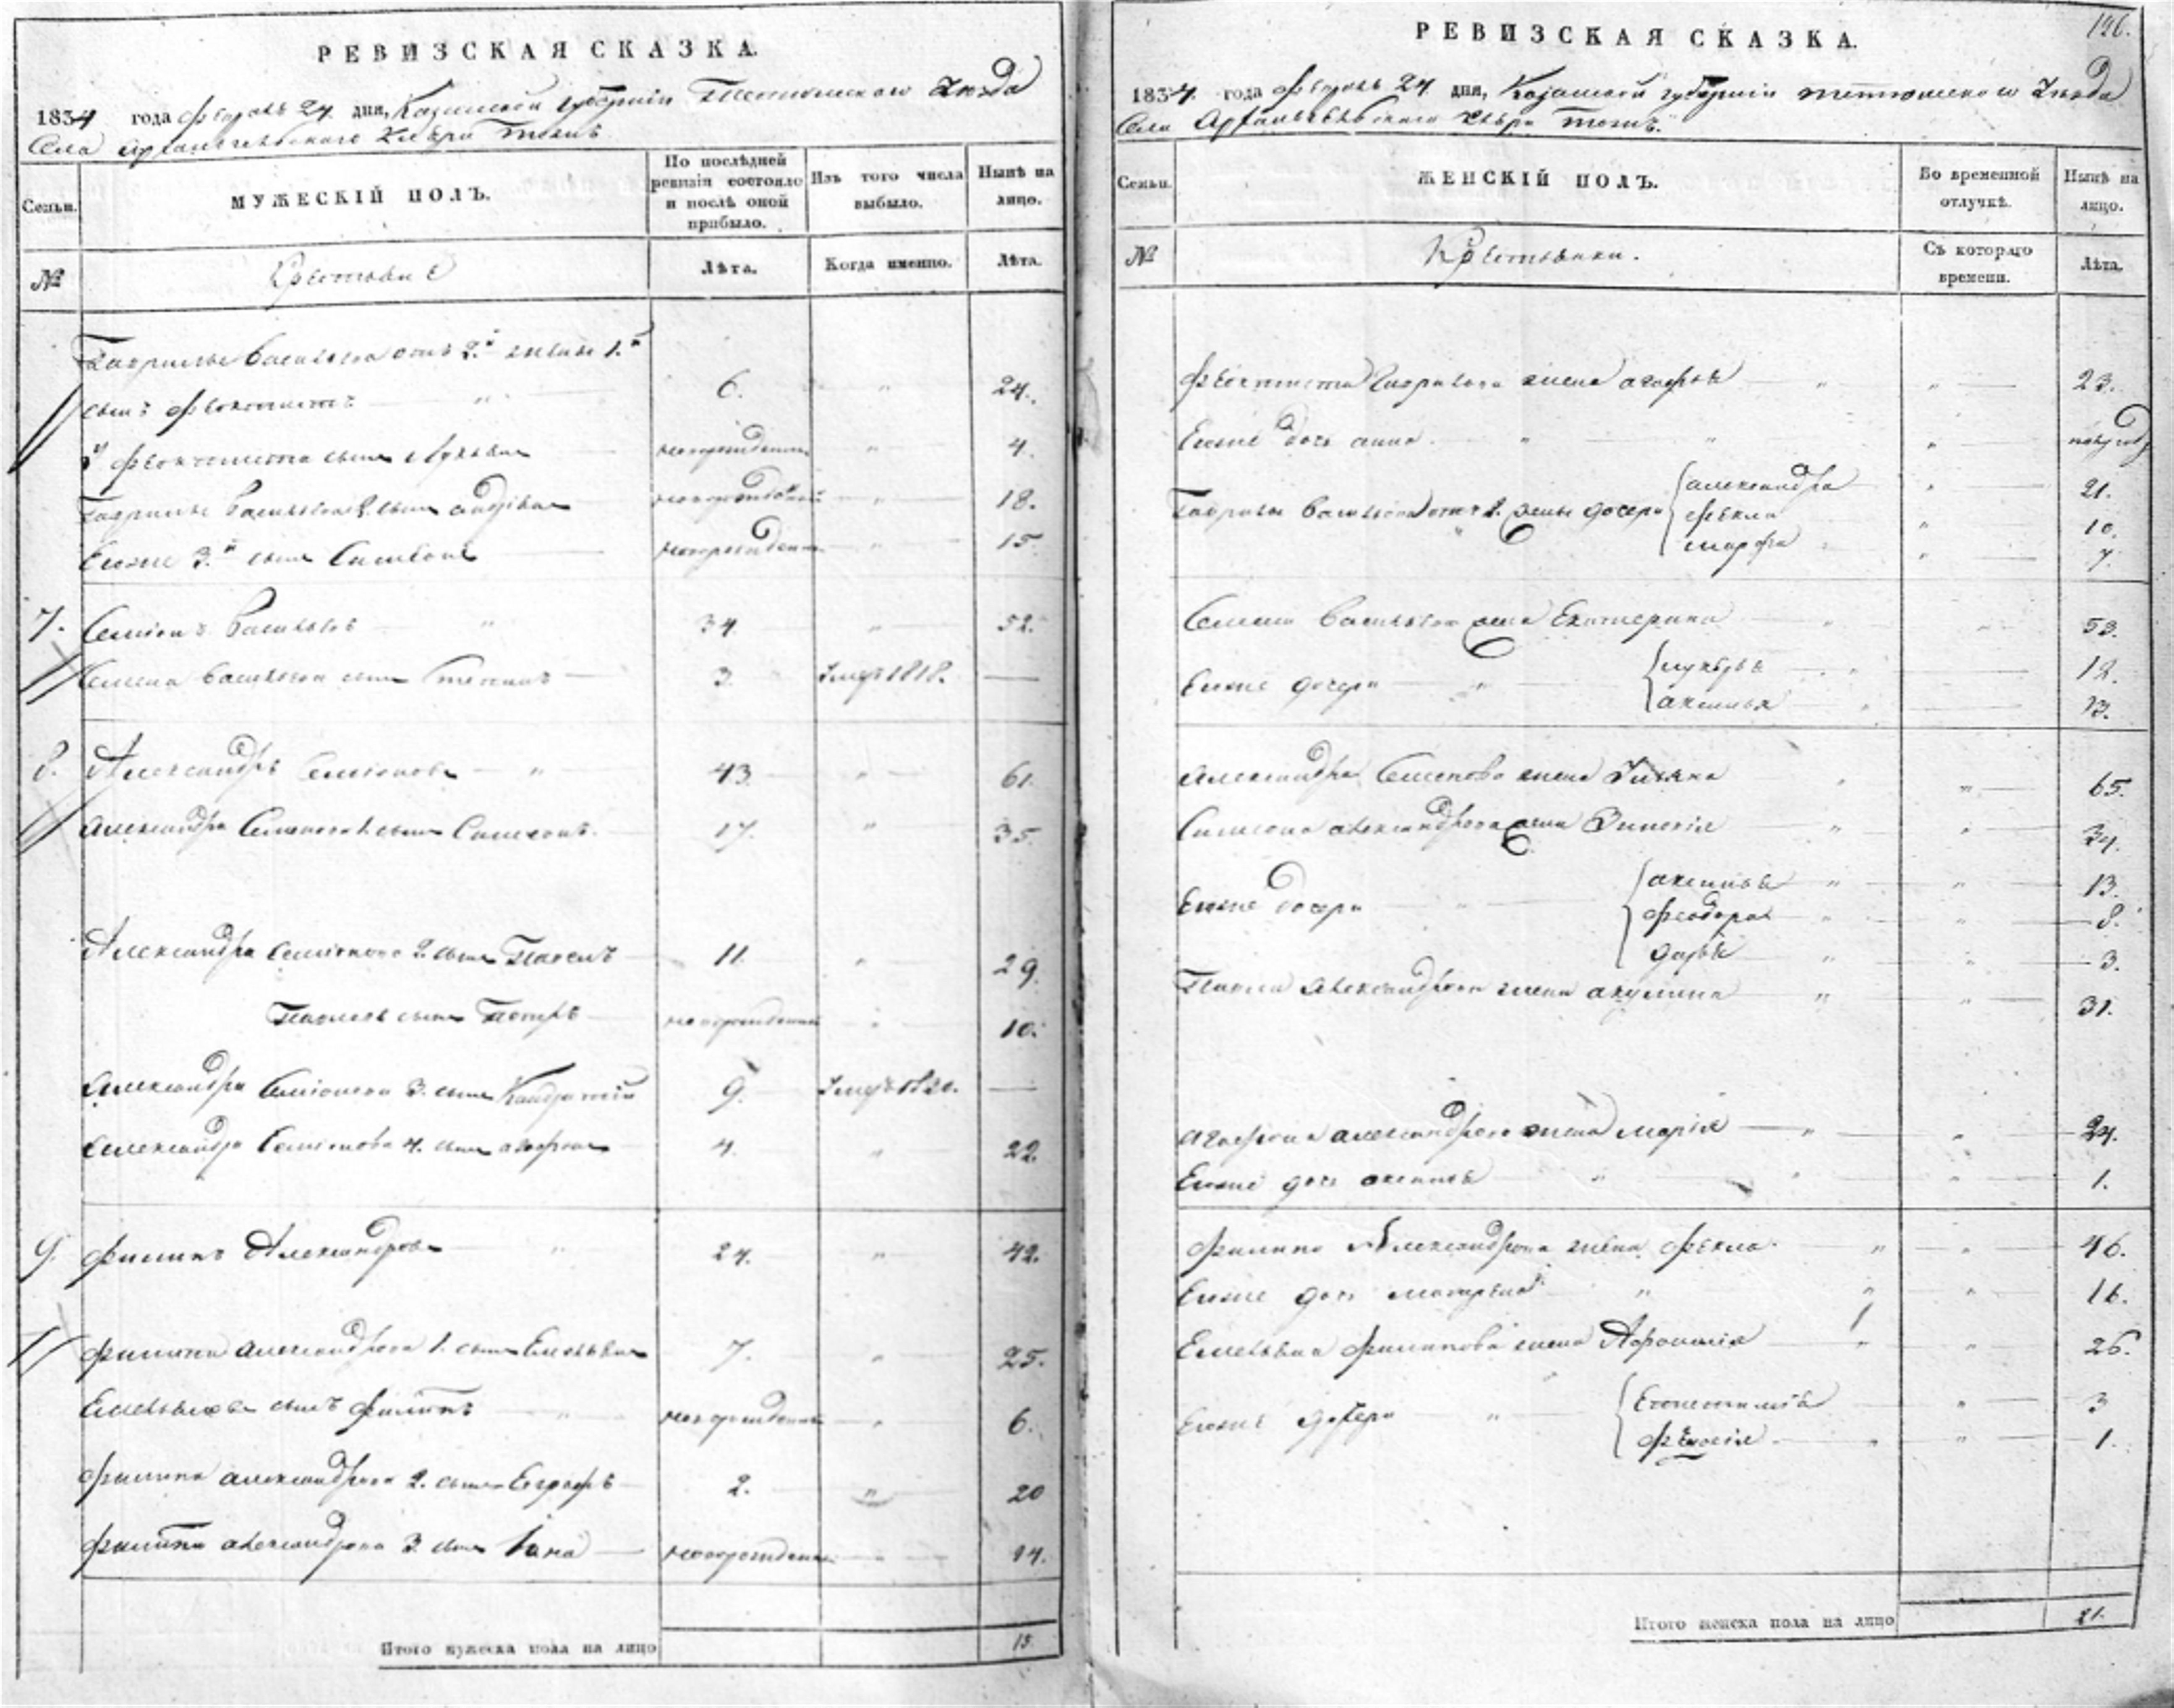 РЕВИЗСКАЯ СКАЗКА.
1834 года февраля 24 дня, Казанской губернии Тетюшского уезда
Села Архангельского Кляри тожъ
Семьи.
МУЖЕСКІЙ ПОЛЪ.
По послѣдней ревизіи состояло и послѣ оной прибыло.
Изъ того числа выбыло.
Нынѣ на лицо.
№
Крестьяне
Лѣта.
Когда именно.
Лѣта.
Гаврилы Васильева отъ 2й жены 1й
сынъ Феоктистъ " 6. " 24.
у Феоктиста сынъ новорожденный " 4.
Гаврилы Васильева 2. сынъ новорожденный " 18.
Емуже 3й сынъ Симеонъ новорожденный " 15.
7. Семіонъ Васильевъ " 34 " 52.
Семена Васильева сынъ Степанъ 3. умеръ 1818. —
8. Александръ Семіоновъ " 43 " 61.
Александра Семіонова 1. сынъ Симеонъ. 17. " 35.
Александра Семіонова 2. сынъ Павелъ 11. " 29.
Павловъ сынъ Петръ новорожденный " 10.
Александра Семіонова 3. сынъ Кандратій 9. умеръ 1820. —
Александра Семіонова 4. сынъ Агафонъ 4. " 22.
9. Филипъ Александровъ " 24. " 42.
Филипа Александрова 1. сынъ Емельянъ 7. " 25.
Емельяновъ сынъ Филипъ " новорожденный " 6.
Филипа Александрова 2. сынъ Евграфъ 2. " 20
Филипа Александрова 3. сынъ новорожденный 14.
Итого мужеска пола на лицо 15.
196.
РЕВИЗСКАЯ СКАЗКА.
1834. года февраля 24 дня, Казанской губерніи Тетюшского уезда
Села Архангельского Кляри тожъ.
Семьи.
ЖЕНСКІЙ ПОЛЪ.
Во временной отлучкѣ.
Нынѣ на лицо.
№
Крестьянки.
Съ котораго времени.
Лѣта.
Феоктиста Гаврилова жена Агафья " " 23.
Егоже дочь Анна " " " полгода
Гаврилы Васильева отъ 2. жены дочери Александра " 21.
Фекла " 10.
Марфа " 7.
Семена Васильева жена Екатерина " 53.
Егоже дочери " 12.
Аксинья " 13.
Александра Семенова жена Ульяна " " 65.
Симеона Александрова жена " " 34.
Егоже дочери Аксинья " " 13.
Феодора " " 8.
Дарья " " 3.
Павла Александрова жена Акулина " " 31.
Агафона Александрова жена Марія " " 24.
Егоже дочь Аксинья " " " 1.
Филипа Александрова жена Фекла " " 46.
Егоже дочь Матрена " " " 16.
Емельяна Филипова жена " " 26.
Егоже дочери " " 3
" " 1.
Итого женска пола на лицо 21.